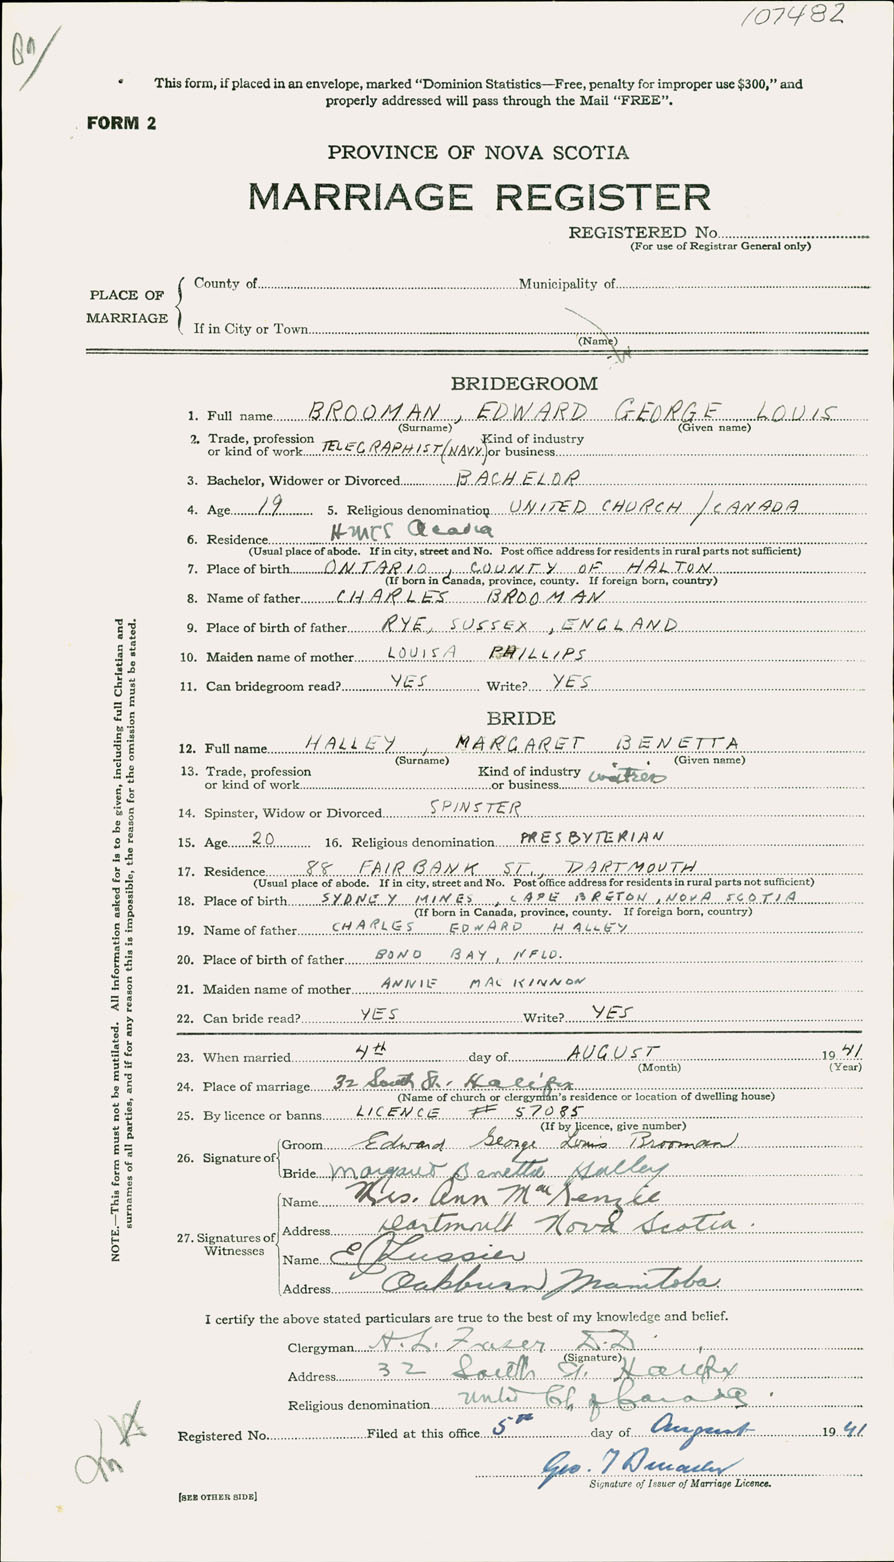 107482
This form, if placed in an envelope, marked “Dominion Statistics—Free, penalty for improper use $300,” and
properly addressed will pass through the Mail “FREE”.
FORM 2
PROVINCE OF NOVA SCOTIA
MARRIAGE REGISTER
REGISTERED No.
(For use of Registrar General only)
PLACE OF MARRIAGE
County of Municipality of
If in City or Town
(Name)
BRIDEGROOM
1. Full name BROOMAN, EDWARD GEORGE LOUIS
(Surname) (Given name)
2. Trade, profession or kind of work TELEGRAPHIST (NAVY) Kind of industry or business
3. Bachelor, Widower or Divorced BACHELOR
4. Age 19 5. Religious denomination UNITED CHURCH / CANADA
6. Residence HMCS Acadia
(Usual place of abode. If in city, street and No. Post office address for residents in rural parts not sufficient)
7. Place of birth ONTARIO, COUNTY OF HALTON
(If born in Canada, province, county. If foreign born, country)
8. Name of father CHARLES BROOMAN
9. Place of birth of father RYE, SUSSEX, ENGLAND
10. Maiden name of mother LOUISA PHILLIPS
11. Can bridegroom read? YES Write? YES
BRIDE
12. Full name HALLEY, MARGARET BENETTA
(Surname) (Given name)
13. Trade, profession or kind of work Kind of industry or business waitress
14. Spinster, Widow or Divorced SPINSTER
15. Age 20 16. Religious denomination PRESBYTERIAN
17. Residence 88 FAIRBANK ST., DARTMOUTH
(Usual place of abode. If in city, street and No. Post office address for residents in rural parts not sufficient)
18. Place of birth SYDNEY MINES, CAPE BRETON, NOVA SCOTIA
(If born in Canada, province, county. If foreign born, country)
19. Name of father CHARLES EDWARD HALLEY
20. Place of birth of father BOND BAY, NFLD.
21. Maiden name of mother ANNIE MACKINNON
22. Can bride read? YES Write? YES
23. When married 4th day of AUGUST 1941
(Month) (Year)
24. Place of marriage 32 South St. Halifax
(Name of church or clergyman's residence or location of dwelling house)
25. By licence or banns LICENCE # 57085
(If by licence, give number)
26. Signature of
Groom Edward George Louis Brooman
Bride Margaret Benetta Halley
27. Signatures of Witnesses
Name Mrs. Ann MacKenzie
Address Dartmouth Nova Scotia.
Name E Lussier
Address Oakburn, Manitoba.
I certify the above stated particulars are true to the best of my knowledge and belief.
Clergyman H. L. Fraser D.D.
(Signature)
Address 32 South St. Halifax
Religious denomination United Ch of Canada.
Registered No. Filed at this office 5th day of August 1941
Geo.
Signature of Issuer of Marriage Licence.
[SEE OTHER SIDE]
NOTE.—This form must not be mutilated. All information asked for is to be given, including full Christian and
surnames of all parties, and if for any reason this is impossible, the reason for the omission must be stated.